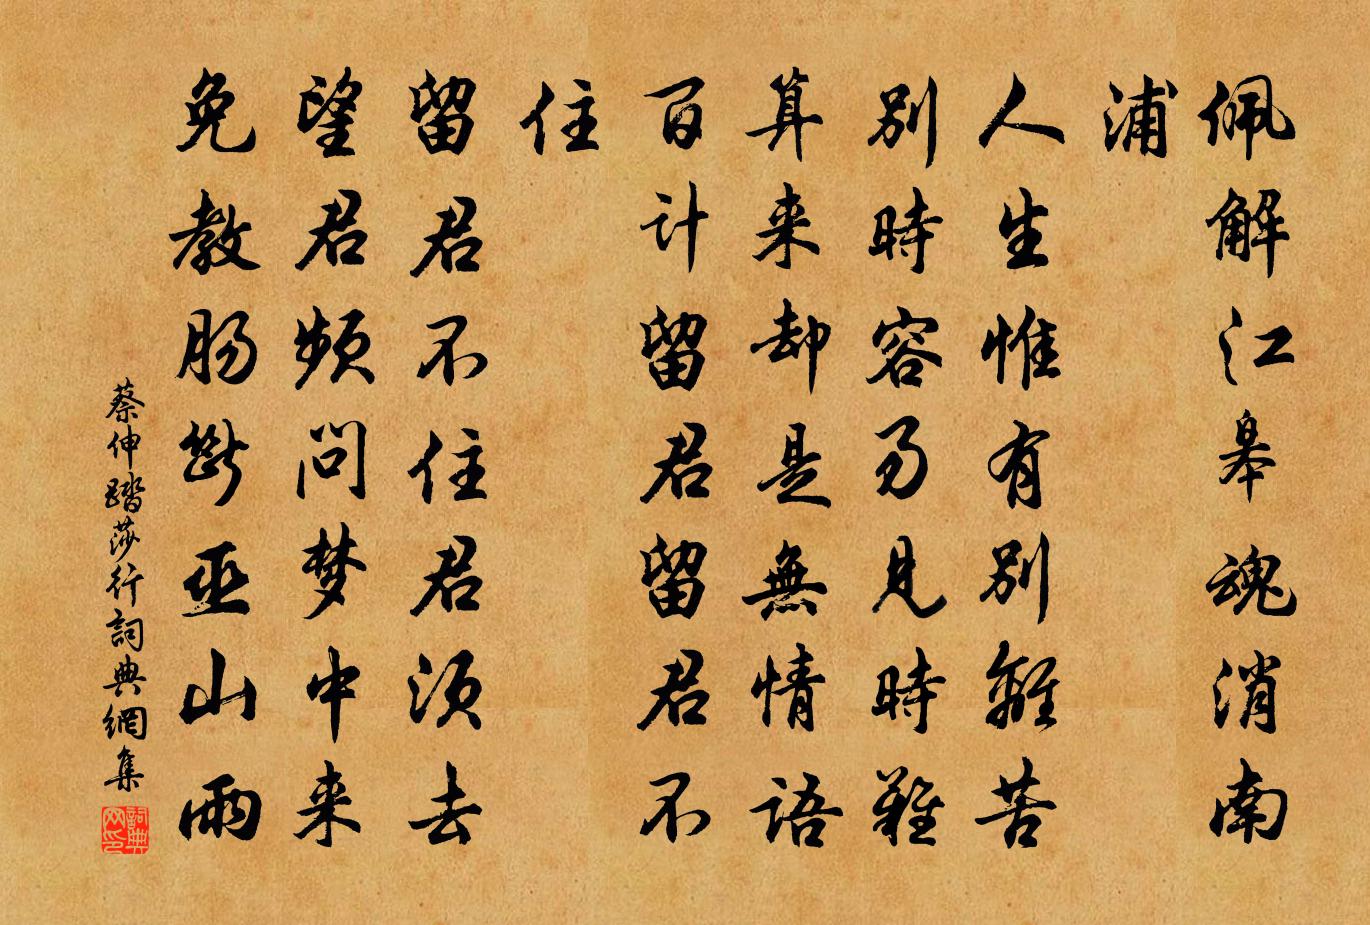 佩解江皋魂消南
浦
人生惟有别離苦
别時容易見時難
算来却是無情語
百计留君留君不
住
留君不住君须去
望君频问梦中来
免教肠断巫山雨
蔡伸踏莎行詞典網集
詞典网印